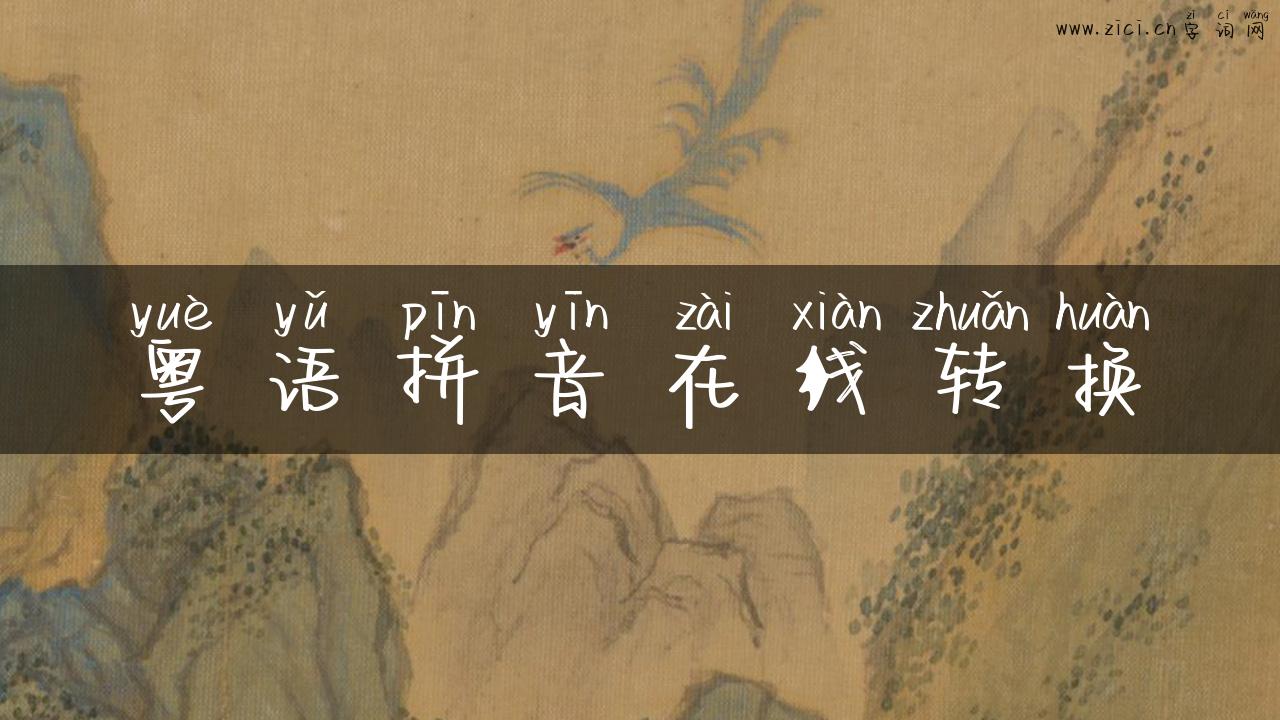 zì cí wǎng
www.zici.cn字词网
yuè yǔ pīn yīn zài xiàn zhuǎn huàn
粤语拼音在线转换